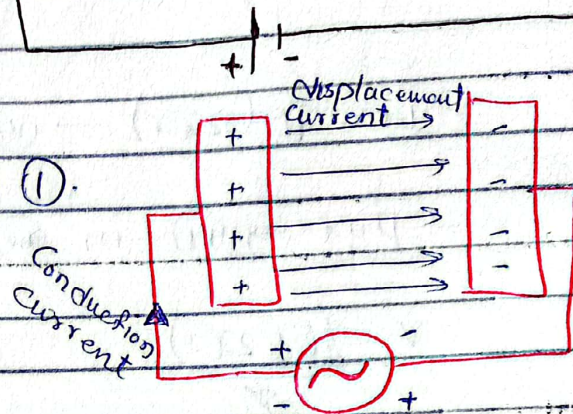 + -
Displacement
Current
+ -
①.
+ -
+ -
+ -
Conduction
Current
+ -
- +